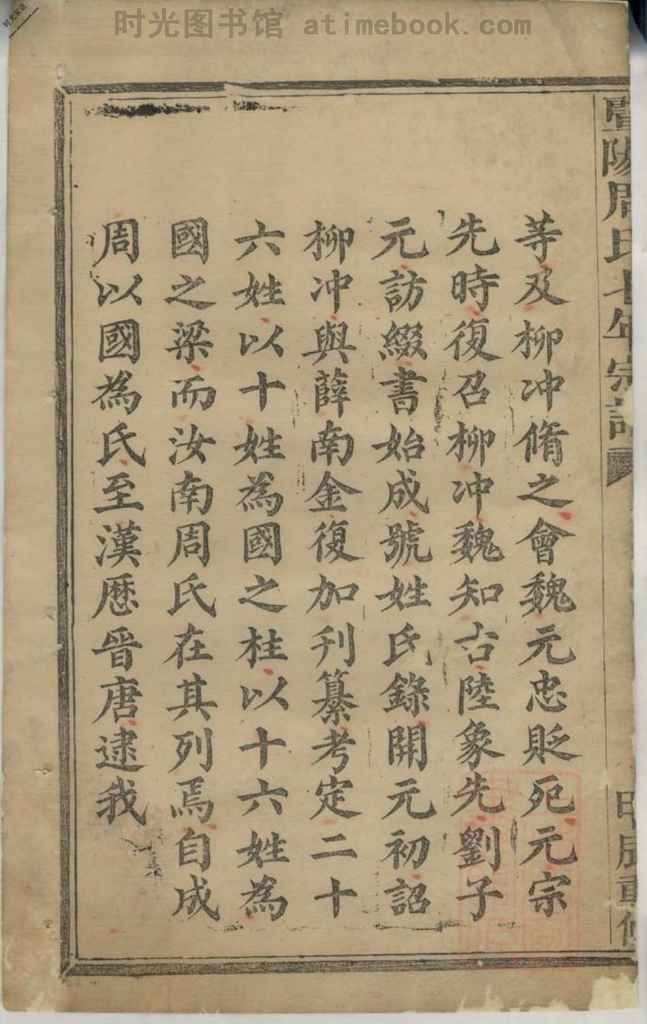 时光图书馆 atimebook.com
暨陽周氏 年宗譜
甲辰重修
等及柳冲脩之會魏元忠貶死元宗
先時復召柳冲魏知古陸象先劉子
元訪綴書始成號姓氏錄開元初詔
柳冲與薛南金復加刋纂考定二十
六姓以十姓為國之柱以十六姓為
國之梁而汝南周氏在其列焉自成
周以國為氏至漢歷晉唐逮我